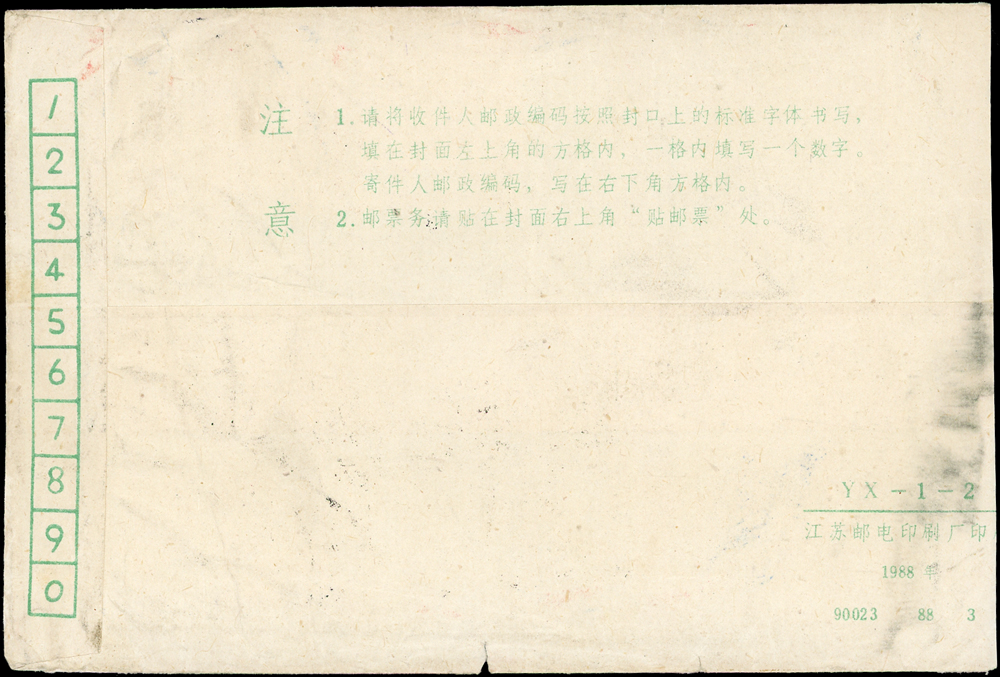 1
2
3
4
5
6
7
8
9
0
注意
1.请将收件人邮政编码按照封口上的标准字体书写，
填在封面左上角的方格内，一格内填写一个数字。
寄件人邮政编码，写在右下角方格内。
2.邮票务请贴在封面右上角“贴邮票”处。
YX-1-2
江苏邮电印刷厂印
1988 年
90023 88 3